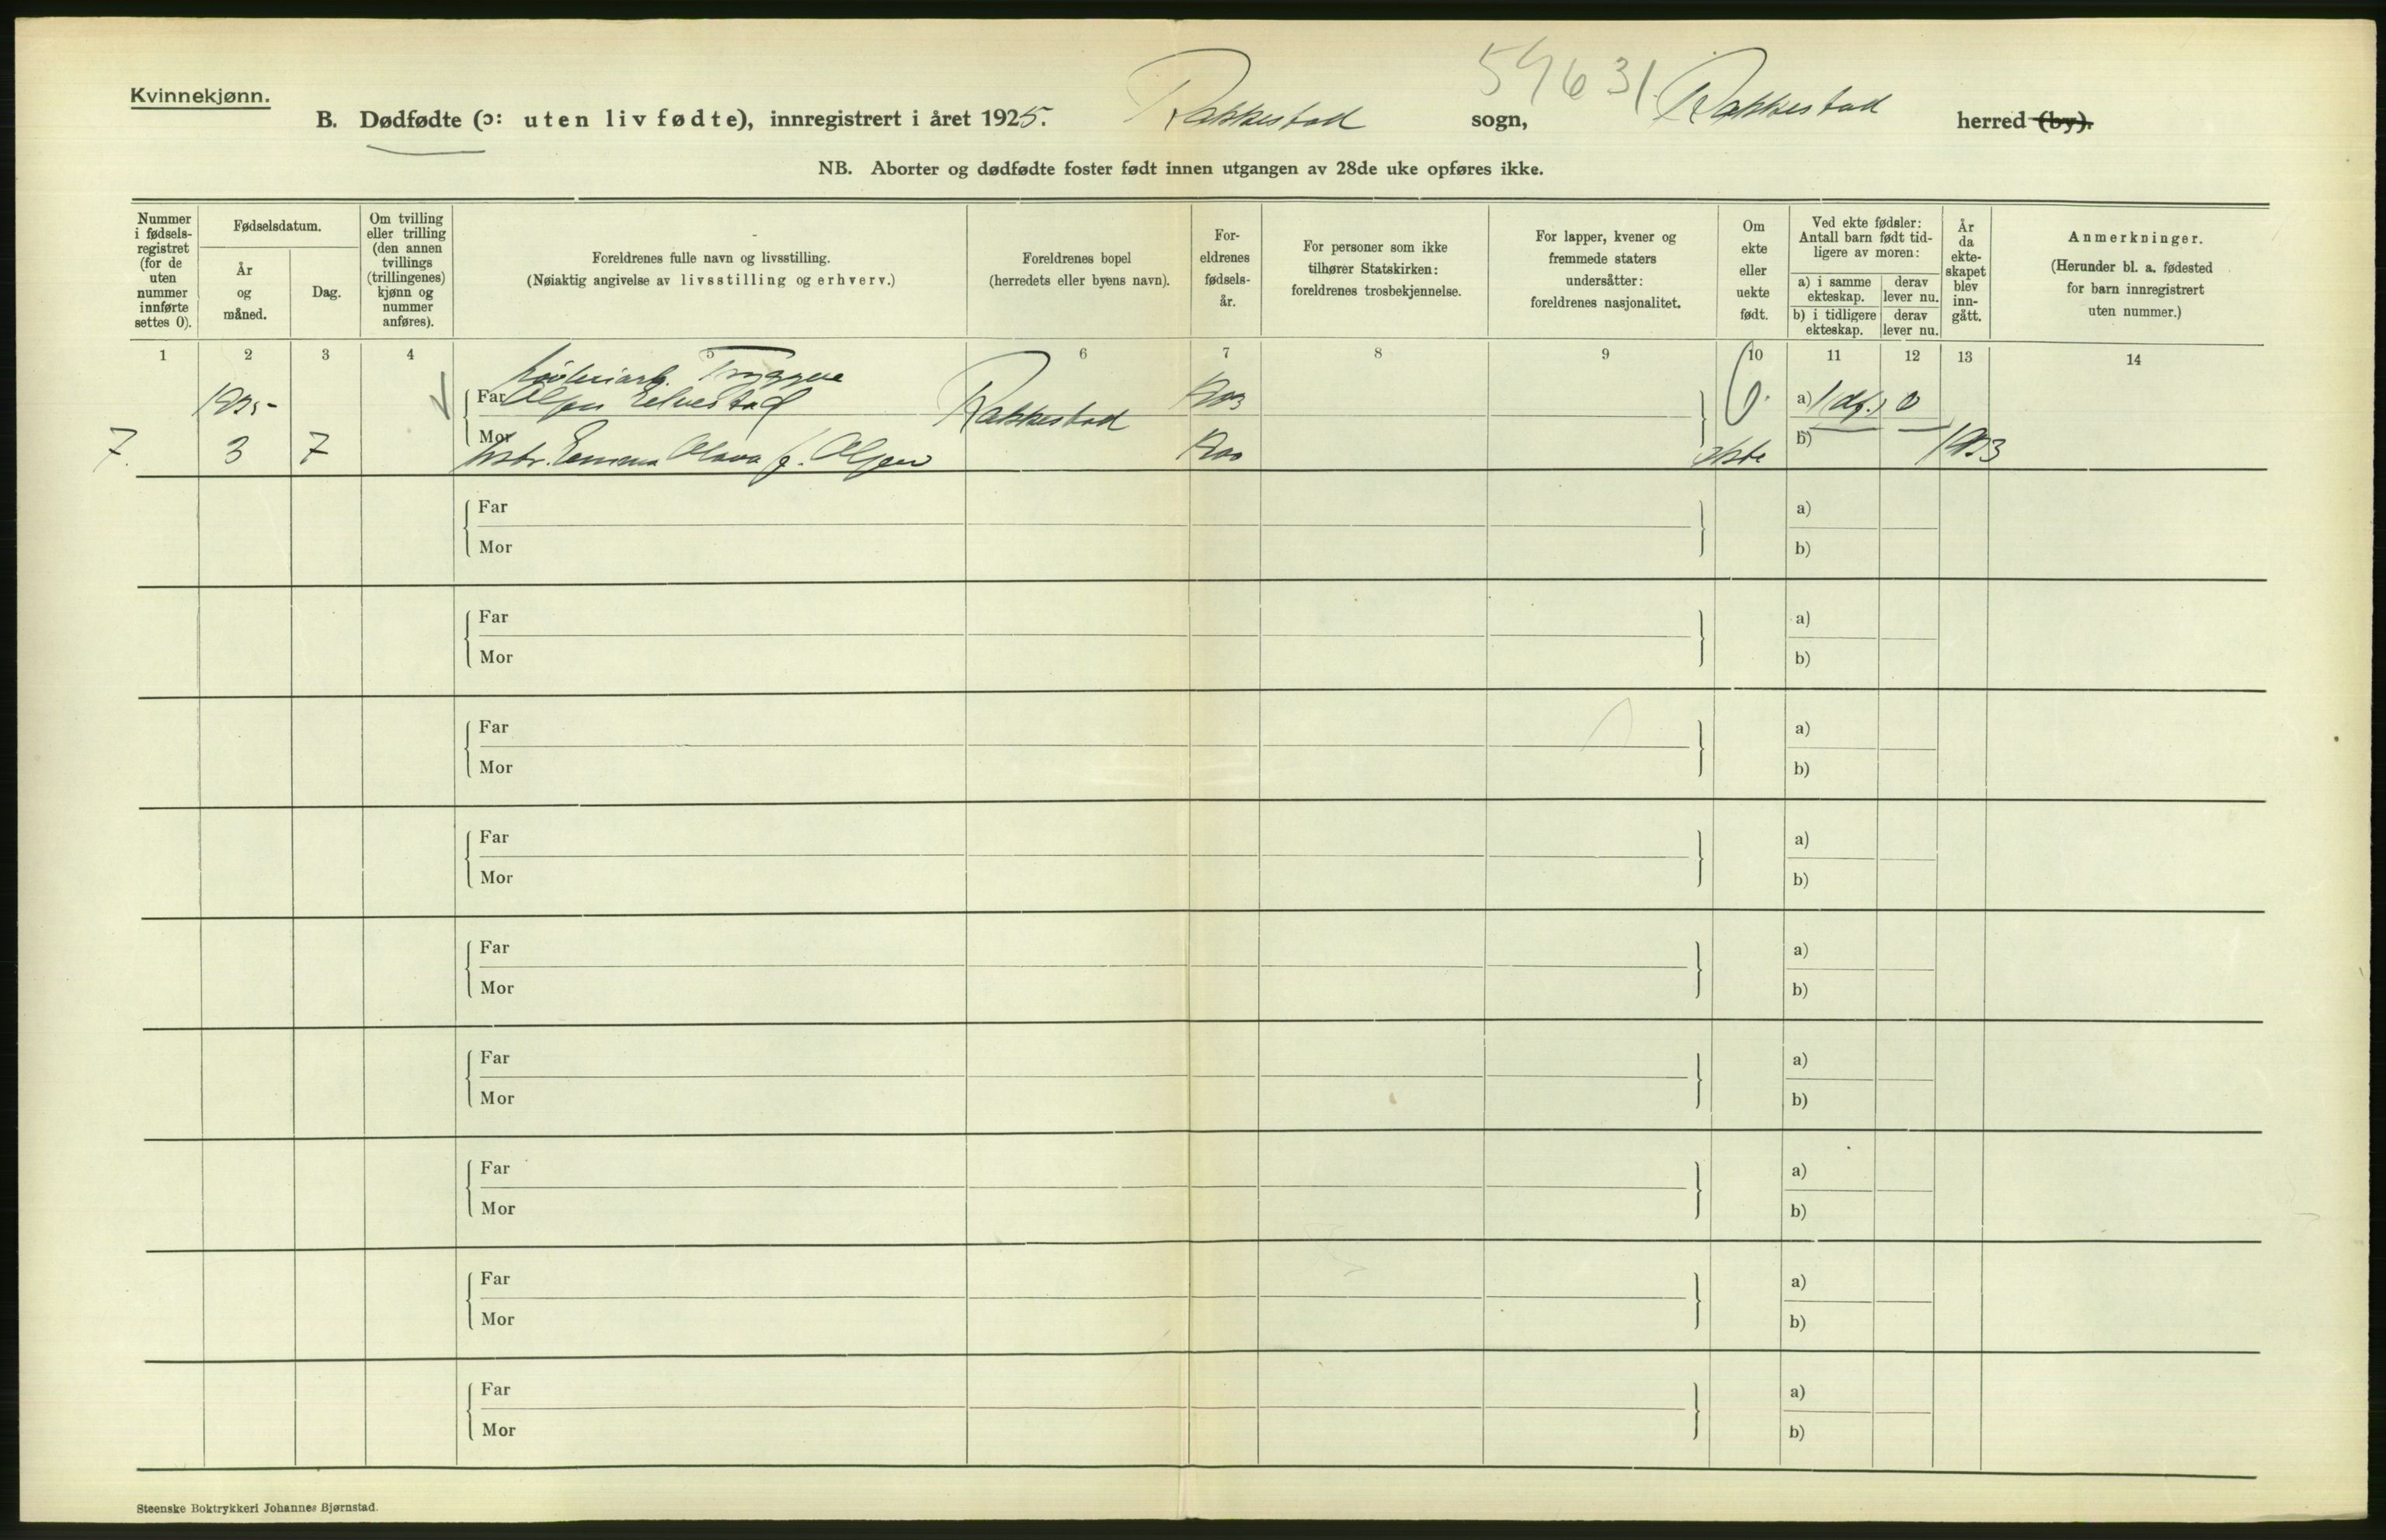 Kvinnekjønn.
54631.
B. Dødfødte (ɔ: uten liv fødte), innregistrert i året 1925. Rakkestad sogn, Rakkestad herred (by).
NB. Aborter og dødfødte foster født innen utgangen av 28de uke opføres ikke.
Nummer
i fødsels-
registret
(for de
uten
nummer
innførte
settes 0).
Fødselsdatum.
År
og
måned.
Dag.
Om tvilling
eller trilling
(den annen
tvillings
(trillingenes)
kjønn og
nummer
anføres).
Foreldrenes fulle navn og livsstilling.
(Nøiaktig angivelse av livsstilling og erhverv.)
Foreldrenes bopel
(herredets eller byens navn).
For-
eldrenes
fødsels-
år.
For personer som ikke
tilhører Statskirken:
foreldrenes trosbekjennelse.
For lapper, kvener og
fremmede staters
undersåtter:
foreldrenes nasjonalitet.
Om
ekte
eller
uekte
født.
Ved ekte fødsler:
Antall barn født tid-
ligere av moren:
a) i samme
ekteskap.
derav
lever nu.
b) i tidligere
ekteskap.
derav
lever nu.
År
da
ekte-
skapet
blev
inn-
gått.
Anmerkninger.
(Herunder bl. a. fødested
for barn innregistrert
uten nummer.)
1 2 3 4 5 6 7 8 9 10 11 12 13 14
Tryggve
1925 Far Olsen Rakkestad 1903 a) 1 (df.) 0
7. 3 7 Mor Hstr. Emma Olava f. Olsen 1900 ekte b) 1923
Far a)
Mor b)
Far a)
Mor b)
Far a)
Mor b)
Far a)
Mor b)
Far a)
Mor b)
Far a)
Mor b)
Far a)
Mor b)
Far a)
Mor b)
Far a)
Mor b)
Steenske Boktrykkeri Johannes Bjørnstad.